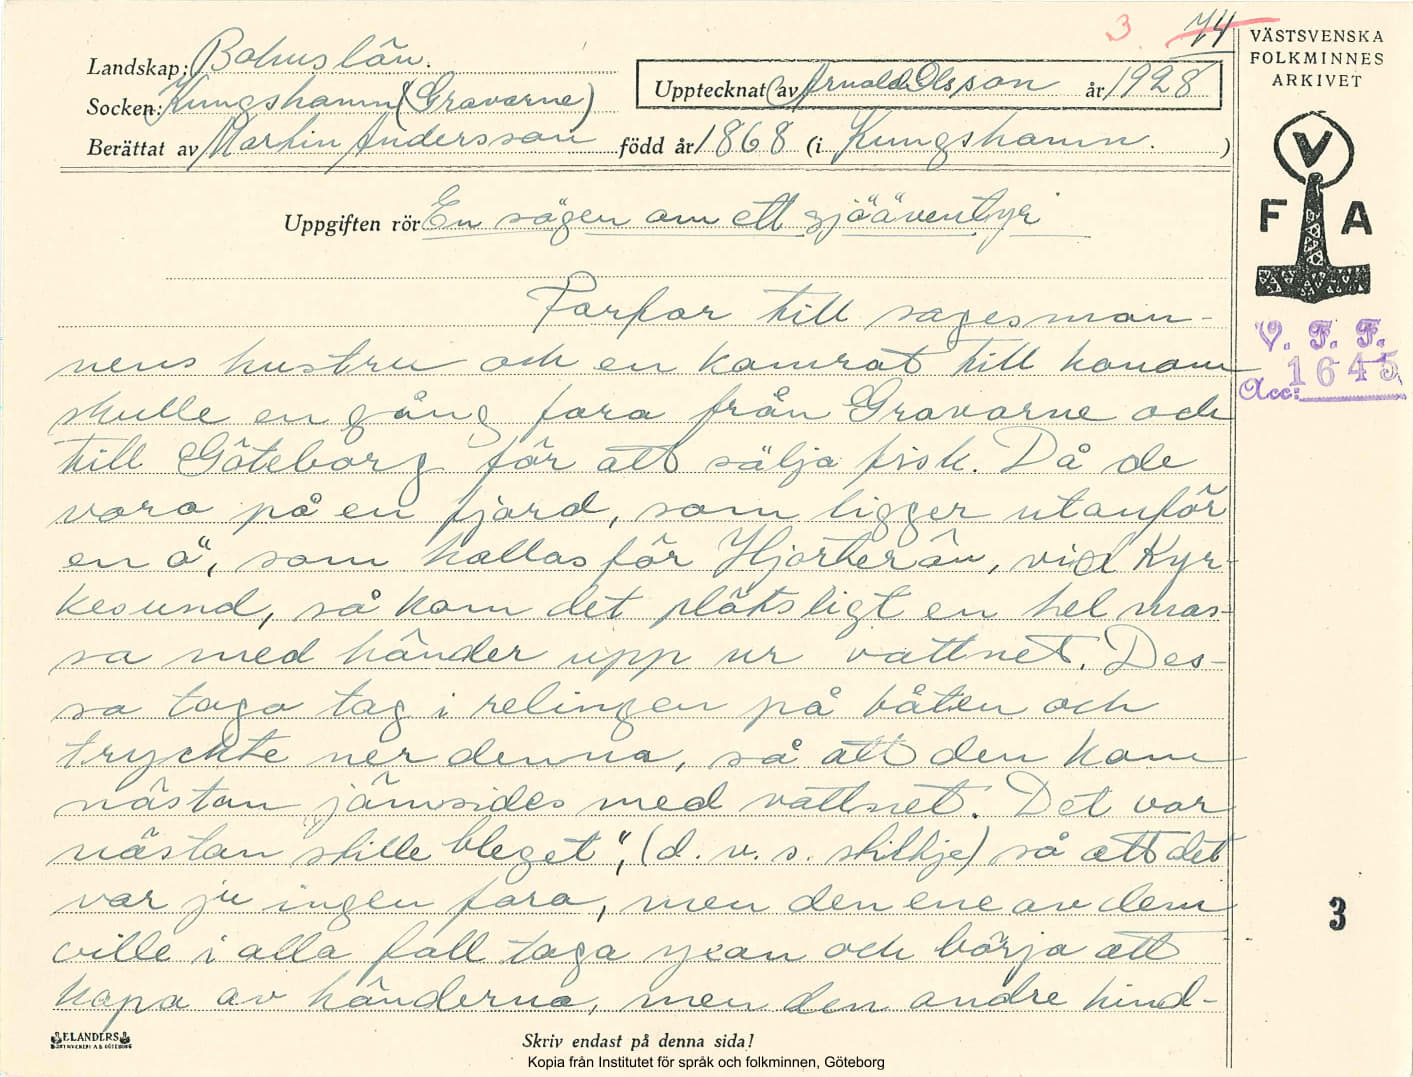 3. 74
Landskap: Bohuslän.
Socken: Kungshamn (Gravarne)
Upptecknat av Arnold Olsson år 1928
Berättat av Martin Andersson född år 1868 (i Kungshamn. )
Uppgiften rör En sägen om ett sjöäventyr
Farfar till sagesman-
nens hustru och en kamrat till honom
skulle en gång fara från Gravarne och
till Göteborg för att sälja fisk. Då de
voro på en fjord, som ligger utanför
en ö", som kallas för Hjorterön, vid Kyr-
kesund, så kom det plötsligt en hel mas-
sa med händer upp ur vattnet. Des-
sa togo tag i relingen på båten och
tryckte ner denna, så att den kom
nästan jämsides med vattnet. Det var
nästan stille bleget", (d. v. s. stiltje) så att det
var ju ingen fara, men den ene av dem
ville i alla fall taga yxan och börja att
kapa av händerna, men den andre hind-
VÄSTSVENSKA
FOLKMINNES
ARKIVET
V
F A
V. F. F.
Acc: 1645
3
ELANDERS
Skriv endast på denna sida!
Kopia från Institutet för språk och folkminnen, Göteborg